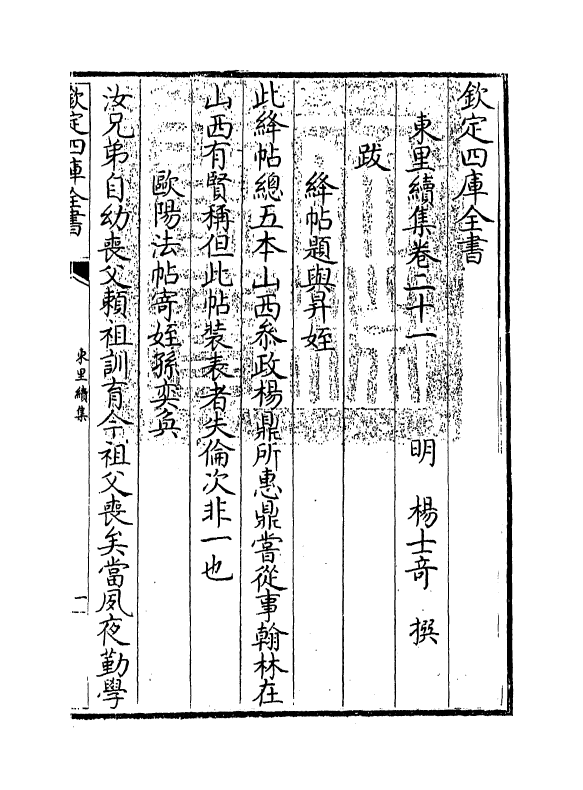 欽定四庫全書
東里續集卷二十一　　明　楊士竒　撰
跋
絳帖題與昇姪
此絳帖總五本山西叅政楊鼎所惠鼎嘗從事翰林在
山西有賢稱但此帖裝表者失倫次非一也
歐陽法帖寄姪孫奕奐
汝兄弟自幼喪父頼祖訓育今祖父喪矣當夙夜勤學
欽定四庫全書
東里續集
一